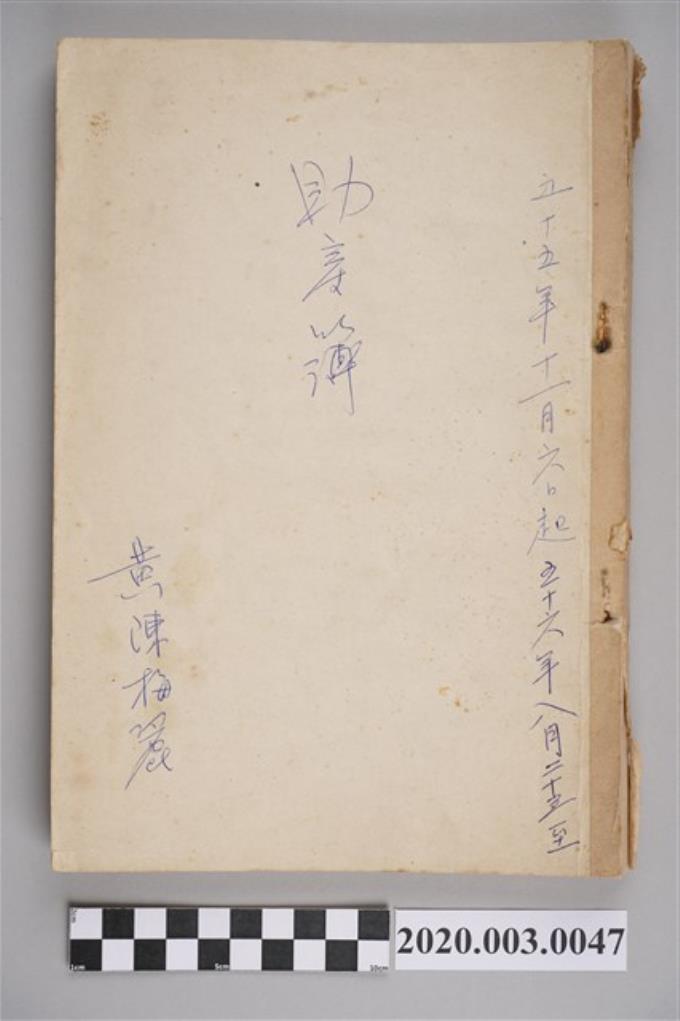 五十五年十一月六日起五十六年八月二十五至
助产簿
黄陳梅麗
1cm
5cm
10cm
2020.003.0047